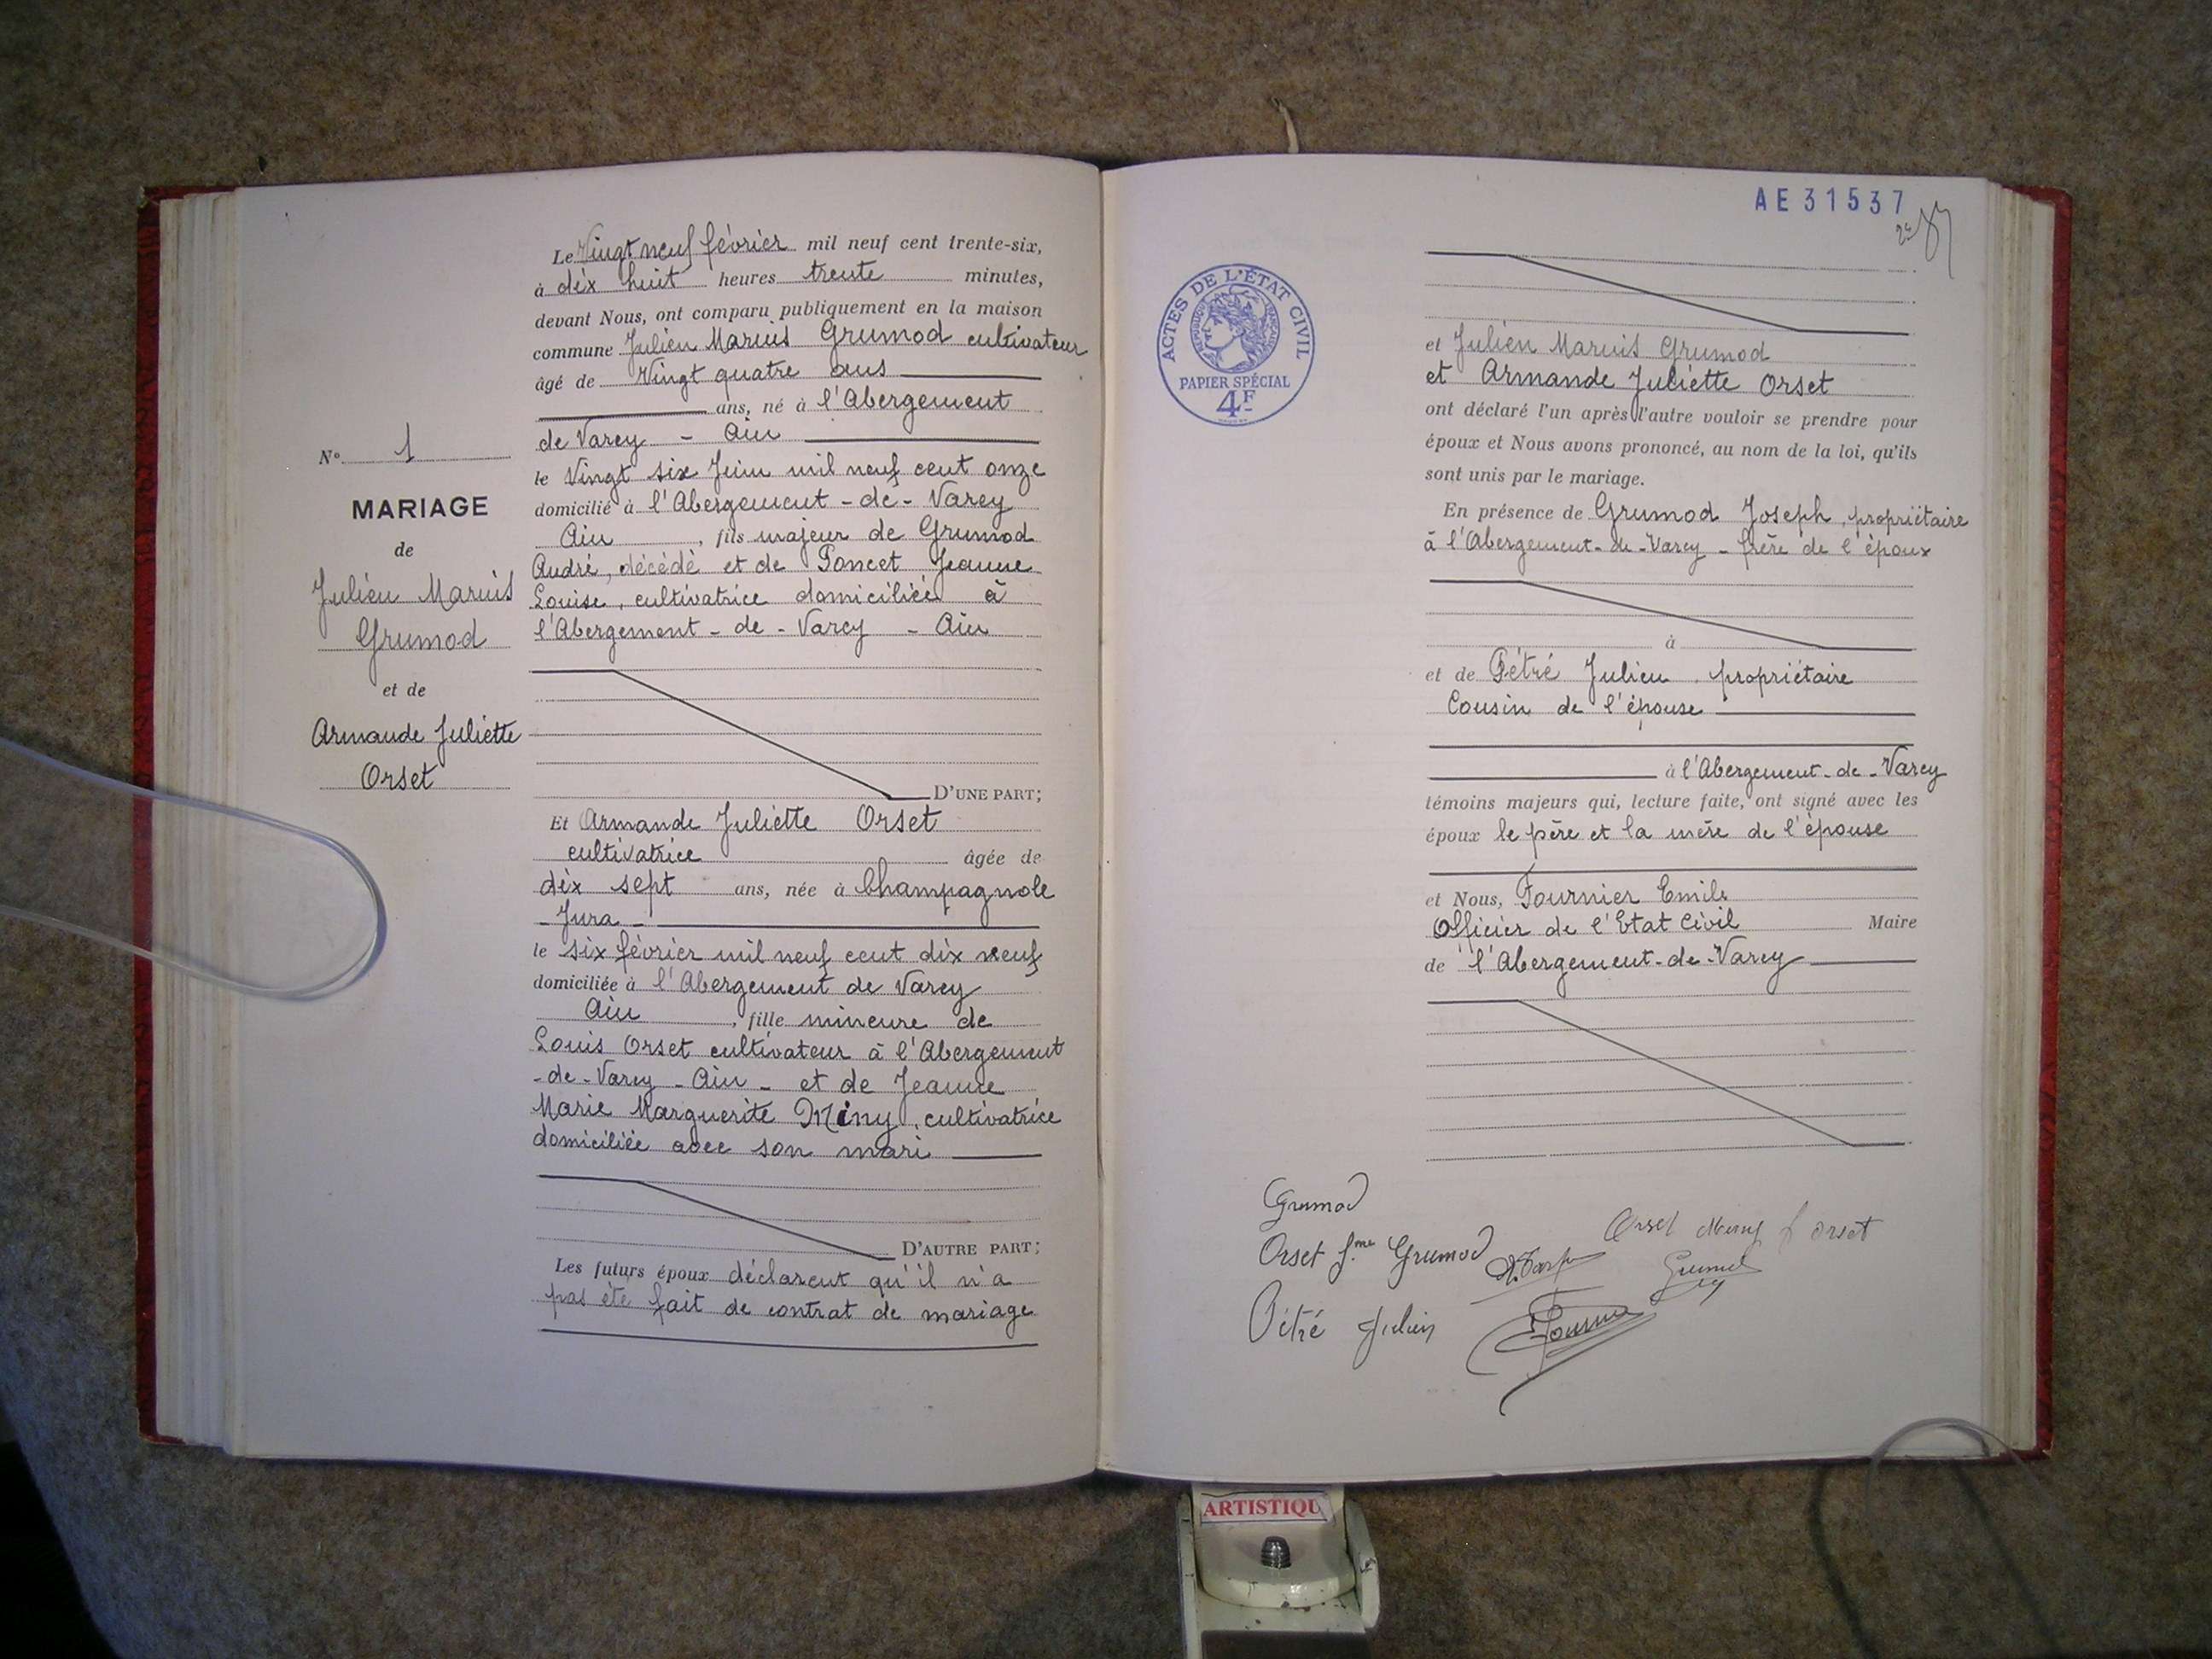 N° 1
MARIAGE
de
Julien Marius
Grumod
et de
Armande Juliette
Orset
Le Vingt neuf février mil neuf cent trente-six,
à dix huit heures trente minutes,
devant Nous, ont comparu publiquement en la maison
commune Julien Marius Grumod cultivateur
âgé de Vingt quatre ans
ans, né à l'Abergement
de Varey - Ain
le Vingt six Juin mil neuf cent onze
domicilié à l'Abergement-de-Varey
Ain, fils majeur de Grumod
André, décédé et de Poncet Jeanne
Louise, cultivatrice domiciliée à
l'Abergement-de-Varey - Ain
D'UNE PART;
Et Armande Juliette Orset
cultivatrice âgée de
dix sept ans, née à Champagnole
- Jura -
le six février mil neuf cent dix neuf
domiciliée à l'Abergement de Varey
Ain, fille mineure de
Louis Orset cultivateur à l'Abergement
-de-Varey - Ain - et de Jeanne
Marie Marguerite Miny, cultivatrice
domiciliée avec son mari
D'AUTRE PART;
Les futurs époux déclarent qu'il n'a
pas été fait de contrat de mariage
AE31537
ACTES DE L'ÉTAT CIVIL
RÉPUBLIQUE FRANÇAISE
PAPIER SPÉCIAL
4F
et Julien Marius Grumod
et Armande Juliette Orset
ont déclaré l'un après l'autre vouloir se prendre pour
époux et Nous avons prononcé, au nom de la loi, qu'ils
sont unis par le mariage.
En présence de Grumod Joseph, propriétaire
à l'Abergement-de-Varey - frère de l'époux
à
et de Pétré Julien, propriétaire
Cousin de l'épouse
à l'Abergement-de-Varey
témoins majeurs qui, lecture faite, ont signé avec les
époux le père et la mère de l'épouse
et Nous, Fournier Emile
Officier de l'Etat Civil Maire
de l'Abergement-de-Varey
Grumod
Orset Miny L Orset
Orset fme Grumod
Pétré Julien
ARTISTIQU